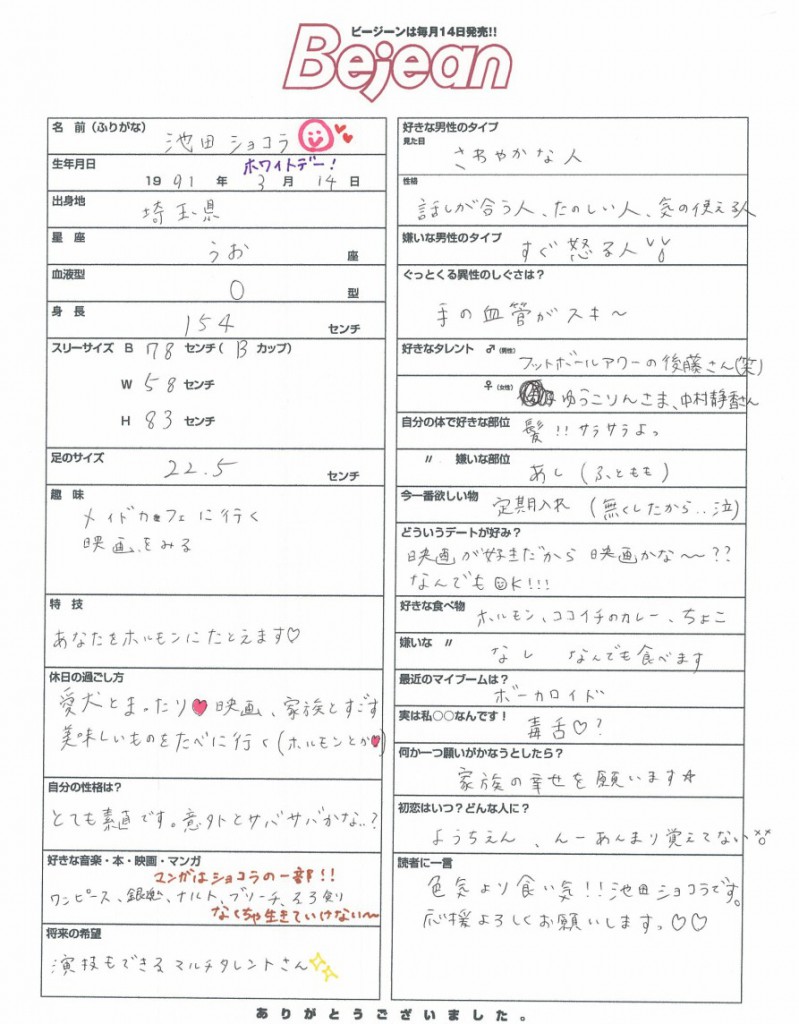 ビージーンは毎月14日発売!!
Bejean
名 前(ふりがな)
池田ショコラ
生年月日
ホワイトデー!
1991年3月14日
出身地
埼玉県
星 座
うお 座
血液型
O 型
身 長
154 センチ
スリーサイズ B 78 センチ( B カップ)
W 58 センチ
H 83 センチ
足のサイズ
22.5 センチ
趣 味
メイドカフェに行く
映画をみる
特 技
あなたをホルモンにたとえます♡
休日の過ごし方
愛犬とまったり♥映画、家族とすごす
美味しいものをたべに行く(ホルモンとか♥)
自分の性格は?
とても素直です。意外とサバサバかな..?
好きな音楽・本・映画・マンガ
マンガはショコラの一部!!
ワンピース、銀魂、ナルト、ブリーチ、
なくちゃ生きていけない〜
将来の希望
演技もできるマルチタレントさん
好きな男性のタイプ
見た目
さわやかな人
性格
話しが合う人、たのしい人、気の使える人
嫌いな男性のタイプ
すぐ怒る人
ぐっとくる異性のしぐさは?
手の血管がスキ〜
好きなタレント ♂(男性)
フットボールアワーの後藤さん(笑)
♀(女性)
ゆうこりんさま、中村静香さん
自分の体で好きな部位
髪!!サラサラよっ
〃 嫌いな部位
あし(ふともも)
今一番欲しい物
定期入れ(無くしたから..泣)
どういうデートが好み?
映画が好きだから映画かな〜〜??
なんでもOK!!!
好きな食べ物
ホルモン、ココイチのカレー、ちょこ
嫌いな 〃
なし なんでも食べます
最近のマイブームは?
ボーカロイド
実は私○○なんです!
毒舌♡?
何か一つ願いがかなうとしたら?
家族の幸せを願います☆
初恋はいつ?どんな人に?
ようちえん、んーあんまり覚えてない
読者に一言
色気より食い気!!池田ショコラです。
応援よろしくお願いしますっ♡♡
ありがとうございました。